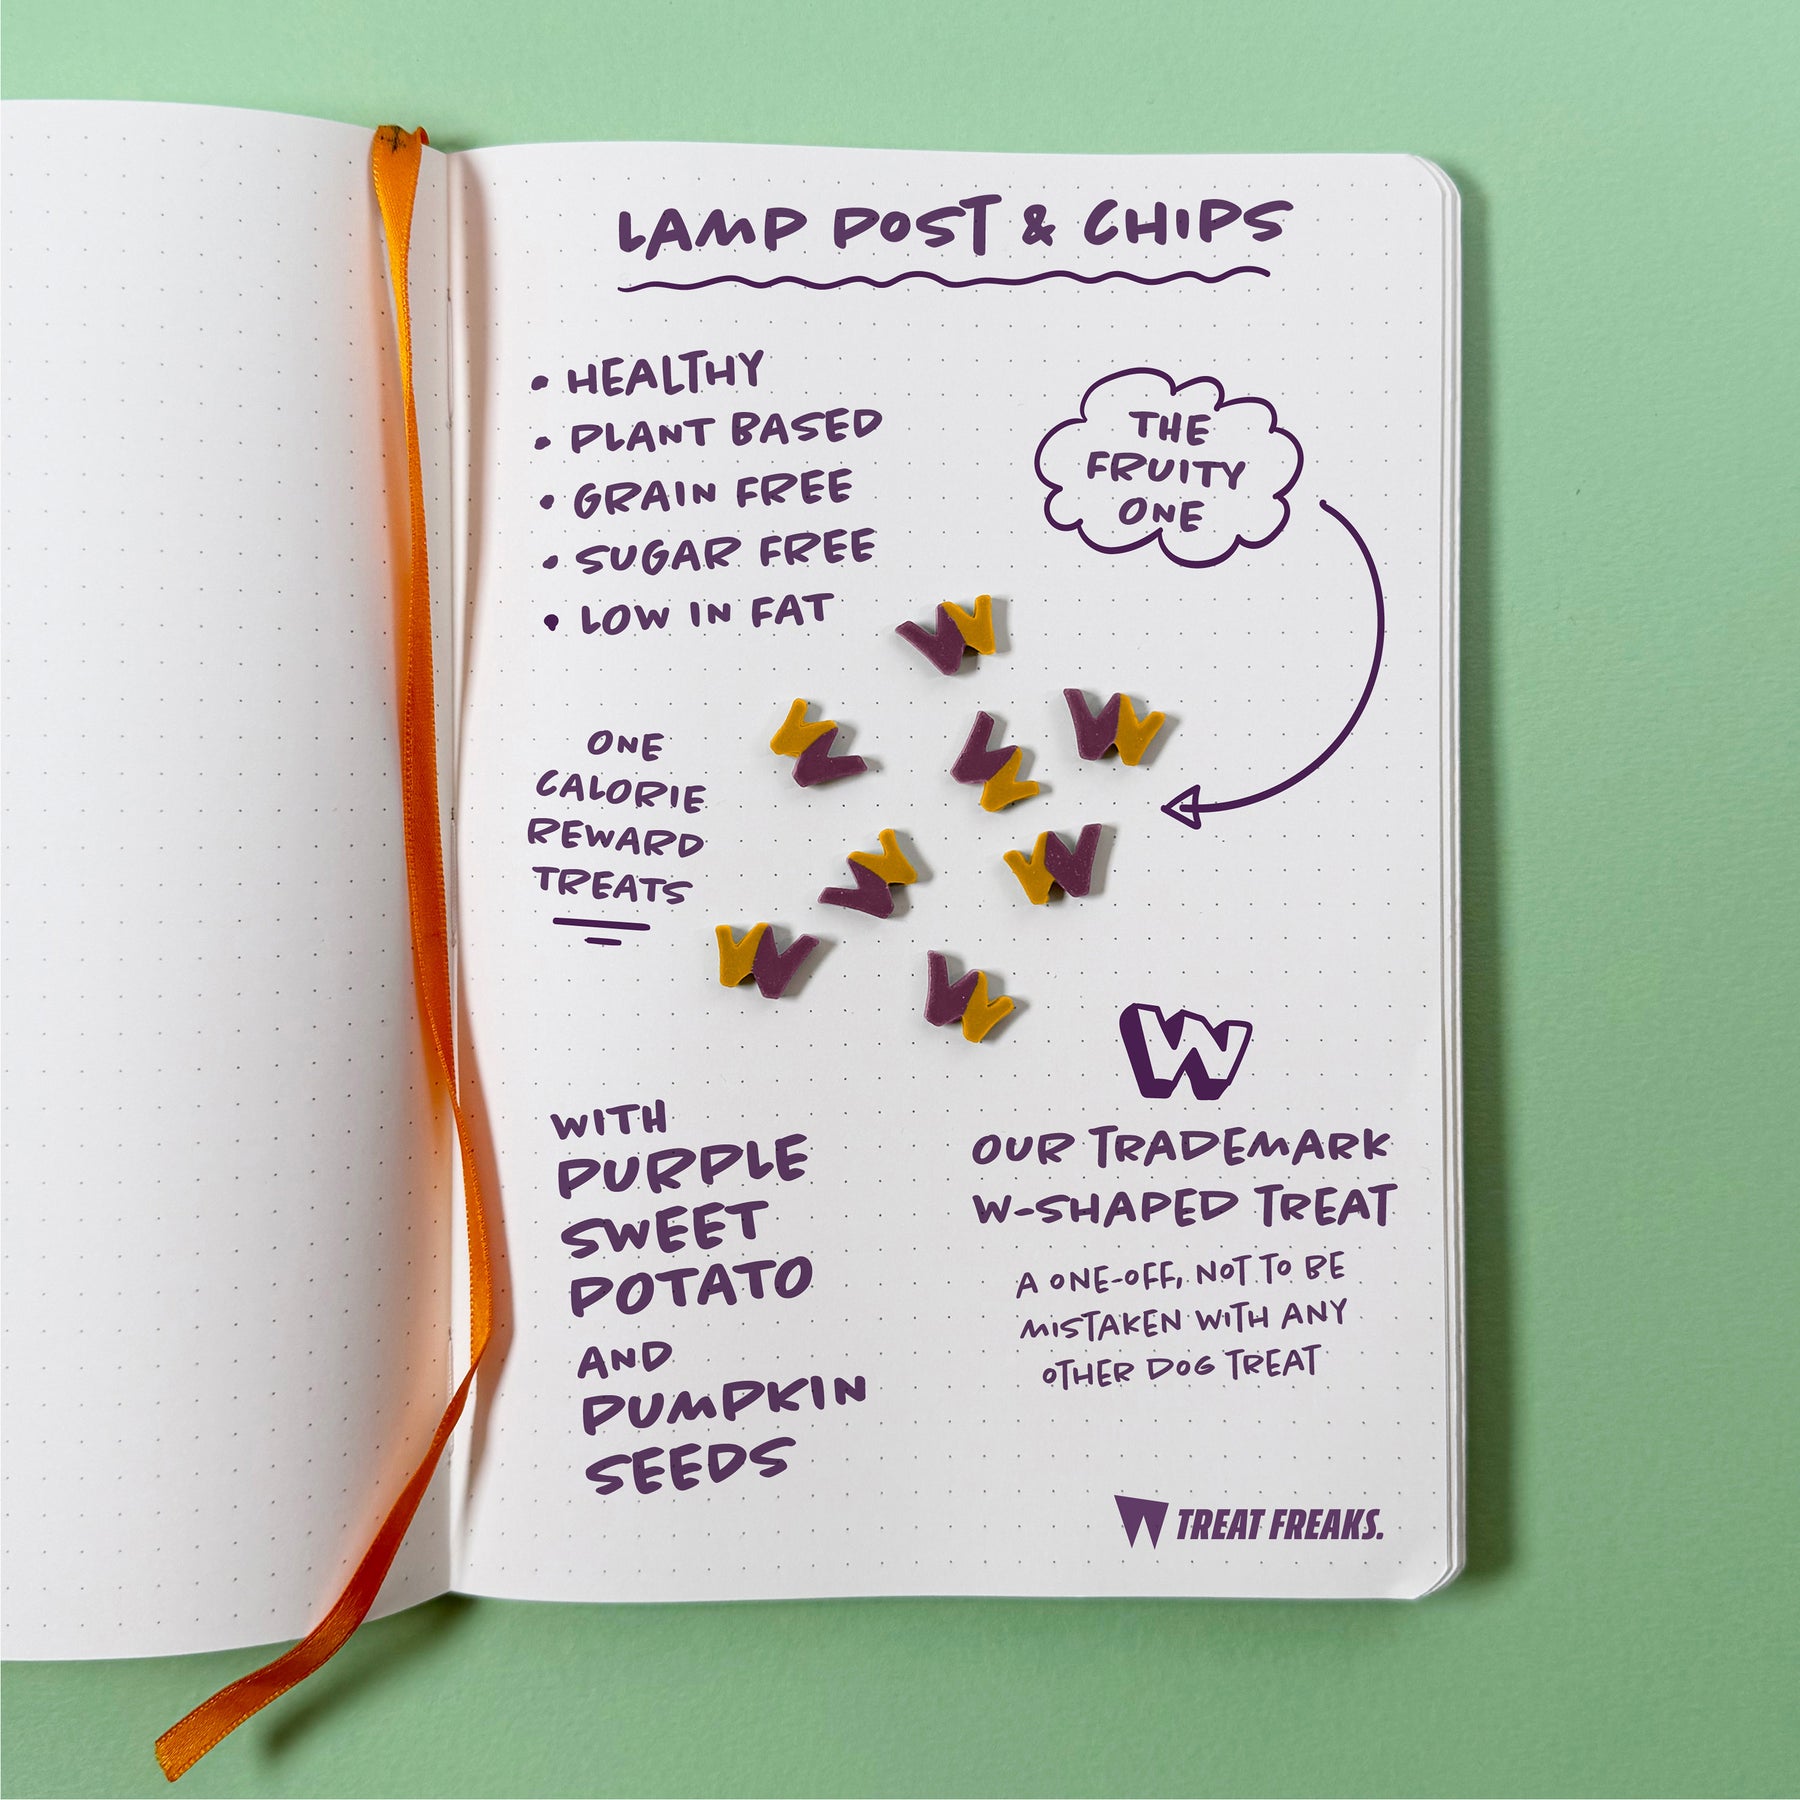 LAMP POST & CHIPS
• HEALTHY
• PLANT BASED
• GRAIN FREE
• SUGAR FREE
• LOW IN FAT
THE
FRUITY
ONE
ONE
CALORIE
REWARD
TREATS
WITH
PURPLE
SWEET
POTATO
AND
PUMPKIN
SEEDS
W
OUR TRADEMARK
W-SHAPED TREAT
A ONE-OFF, NOT TO BE
MISTAKEN WITH ANY
OTHER DOG TREAT
TREAT FREAKS.